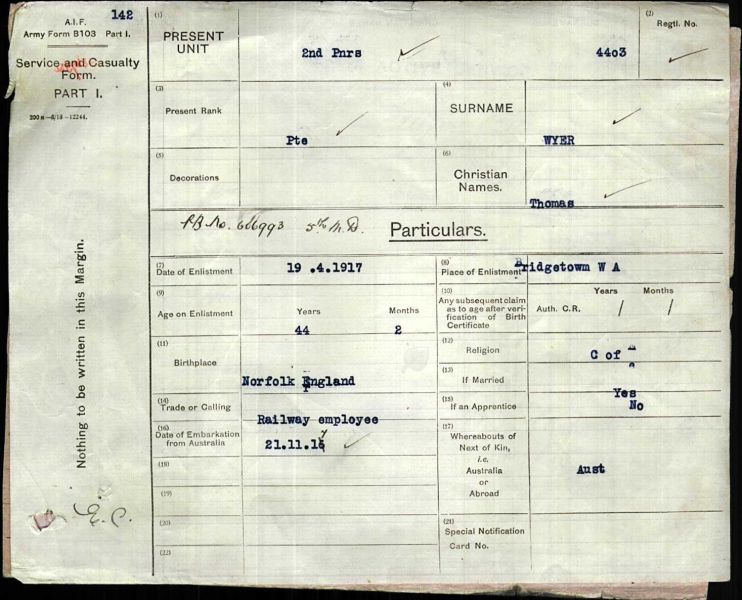 142
A.I.F.
Army Form B103 Part I.
Service and Casualty
Form.
PART I.
200 M—6/18—12244.
Nothing to be written in this Margin.
(1)
PRESENT
UNIT
2nd Pnrs
4403
(2)
Regtl. No.
(3)
Present Rank
Pte
(4)
SURNAME
WYER
(5)
Decorations
(6)
Christian
Names.
Thomas
P.B. No. 66993 5th M.D.
Particulars.
(7)
Date of Enlistment
19 .4.1917
(8)
Place of Enlistment
Bridgetown W A
(9)
Age on Enlistment
Years
Months
44
2
(10)
Any subsequent claim
as to age after veri-
fication of Birth
Certificate
Auth. C.R.
Years
Months
/ /
(11)
Birthplace
Norfolk England
(12)
Religion
C of E
(13)
If Married
Yes
(14)
Trade or Calling
Railway employee
(15)
If an Apprentice
No
(16)
Date of Embarkation
from Australia
21.11.17
(17)
Whereabouts of
Next of Kin,
i.e.
Australia
or
Abroad
Aust
(18)
(19)
(20)
(21)
Special Notification
Card No.
(22)
E.C.